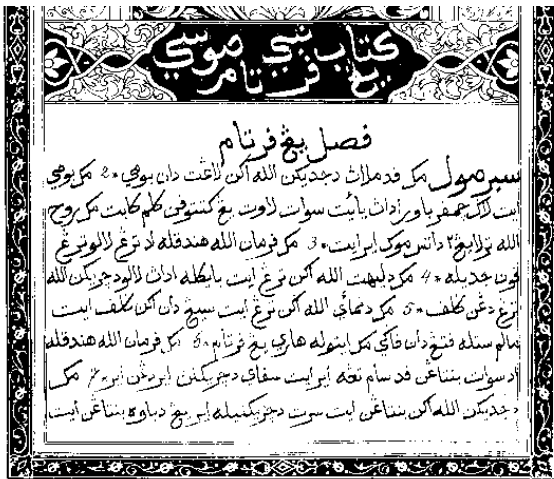 كتاب نبي موسى
يڠ ڤرتام
فصل يڠ ڤرتام
سبرمول مک ڤد ملاڽ دجديکن الله اکن لاڠت دان بومي * 2 مک بومي
ايت لاݢ چمڤر باور اداڽ ياءيت سوات لاوت يڠ کتتوڤن کلم کابت مک روح
الله ترلايڠ٢ داتس موک اير ايت * 3 مک فرمان الله هندقله اد ترڠ لالو ترڠ
ڤون جديله * 4 مک دليهت الله اکن ترڠ ايت بايکله اداڽ لالو دچريکن الله
ترڠ دڠن کلف * 5 مک دنماءي الله اکن ترڠ ايت سيڠ دان اکن کلف ايت
مالم ستله ڤتڠ دان ڤاݢي مک ايتوله هاري يڠ ڤرتام * 6 مک فرمان الله هندقله
اد سوات بنتاڠن ڤد سام تڠه اير ايت سڤاي دچريکنڽ اير دڠن اير * 7 مک
دجديکن الله اکن بنتاڠن ايت سرت دچريکنيله اير يڠ دباوه بنتاڠن ايت